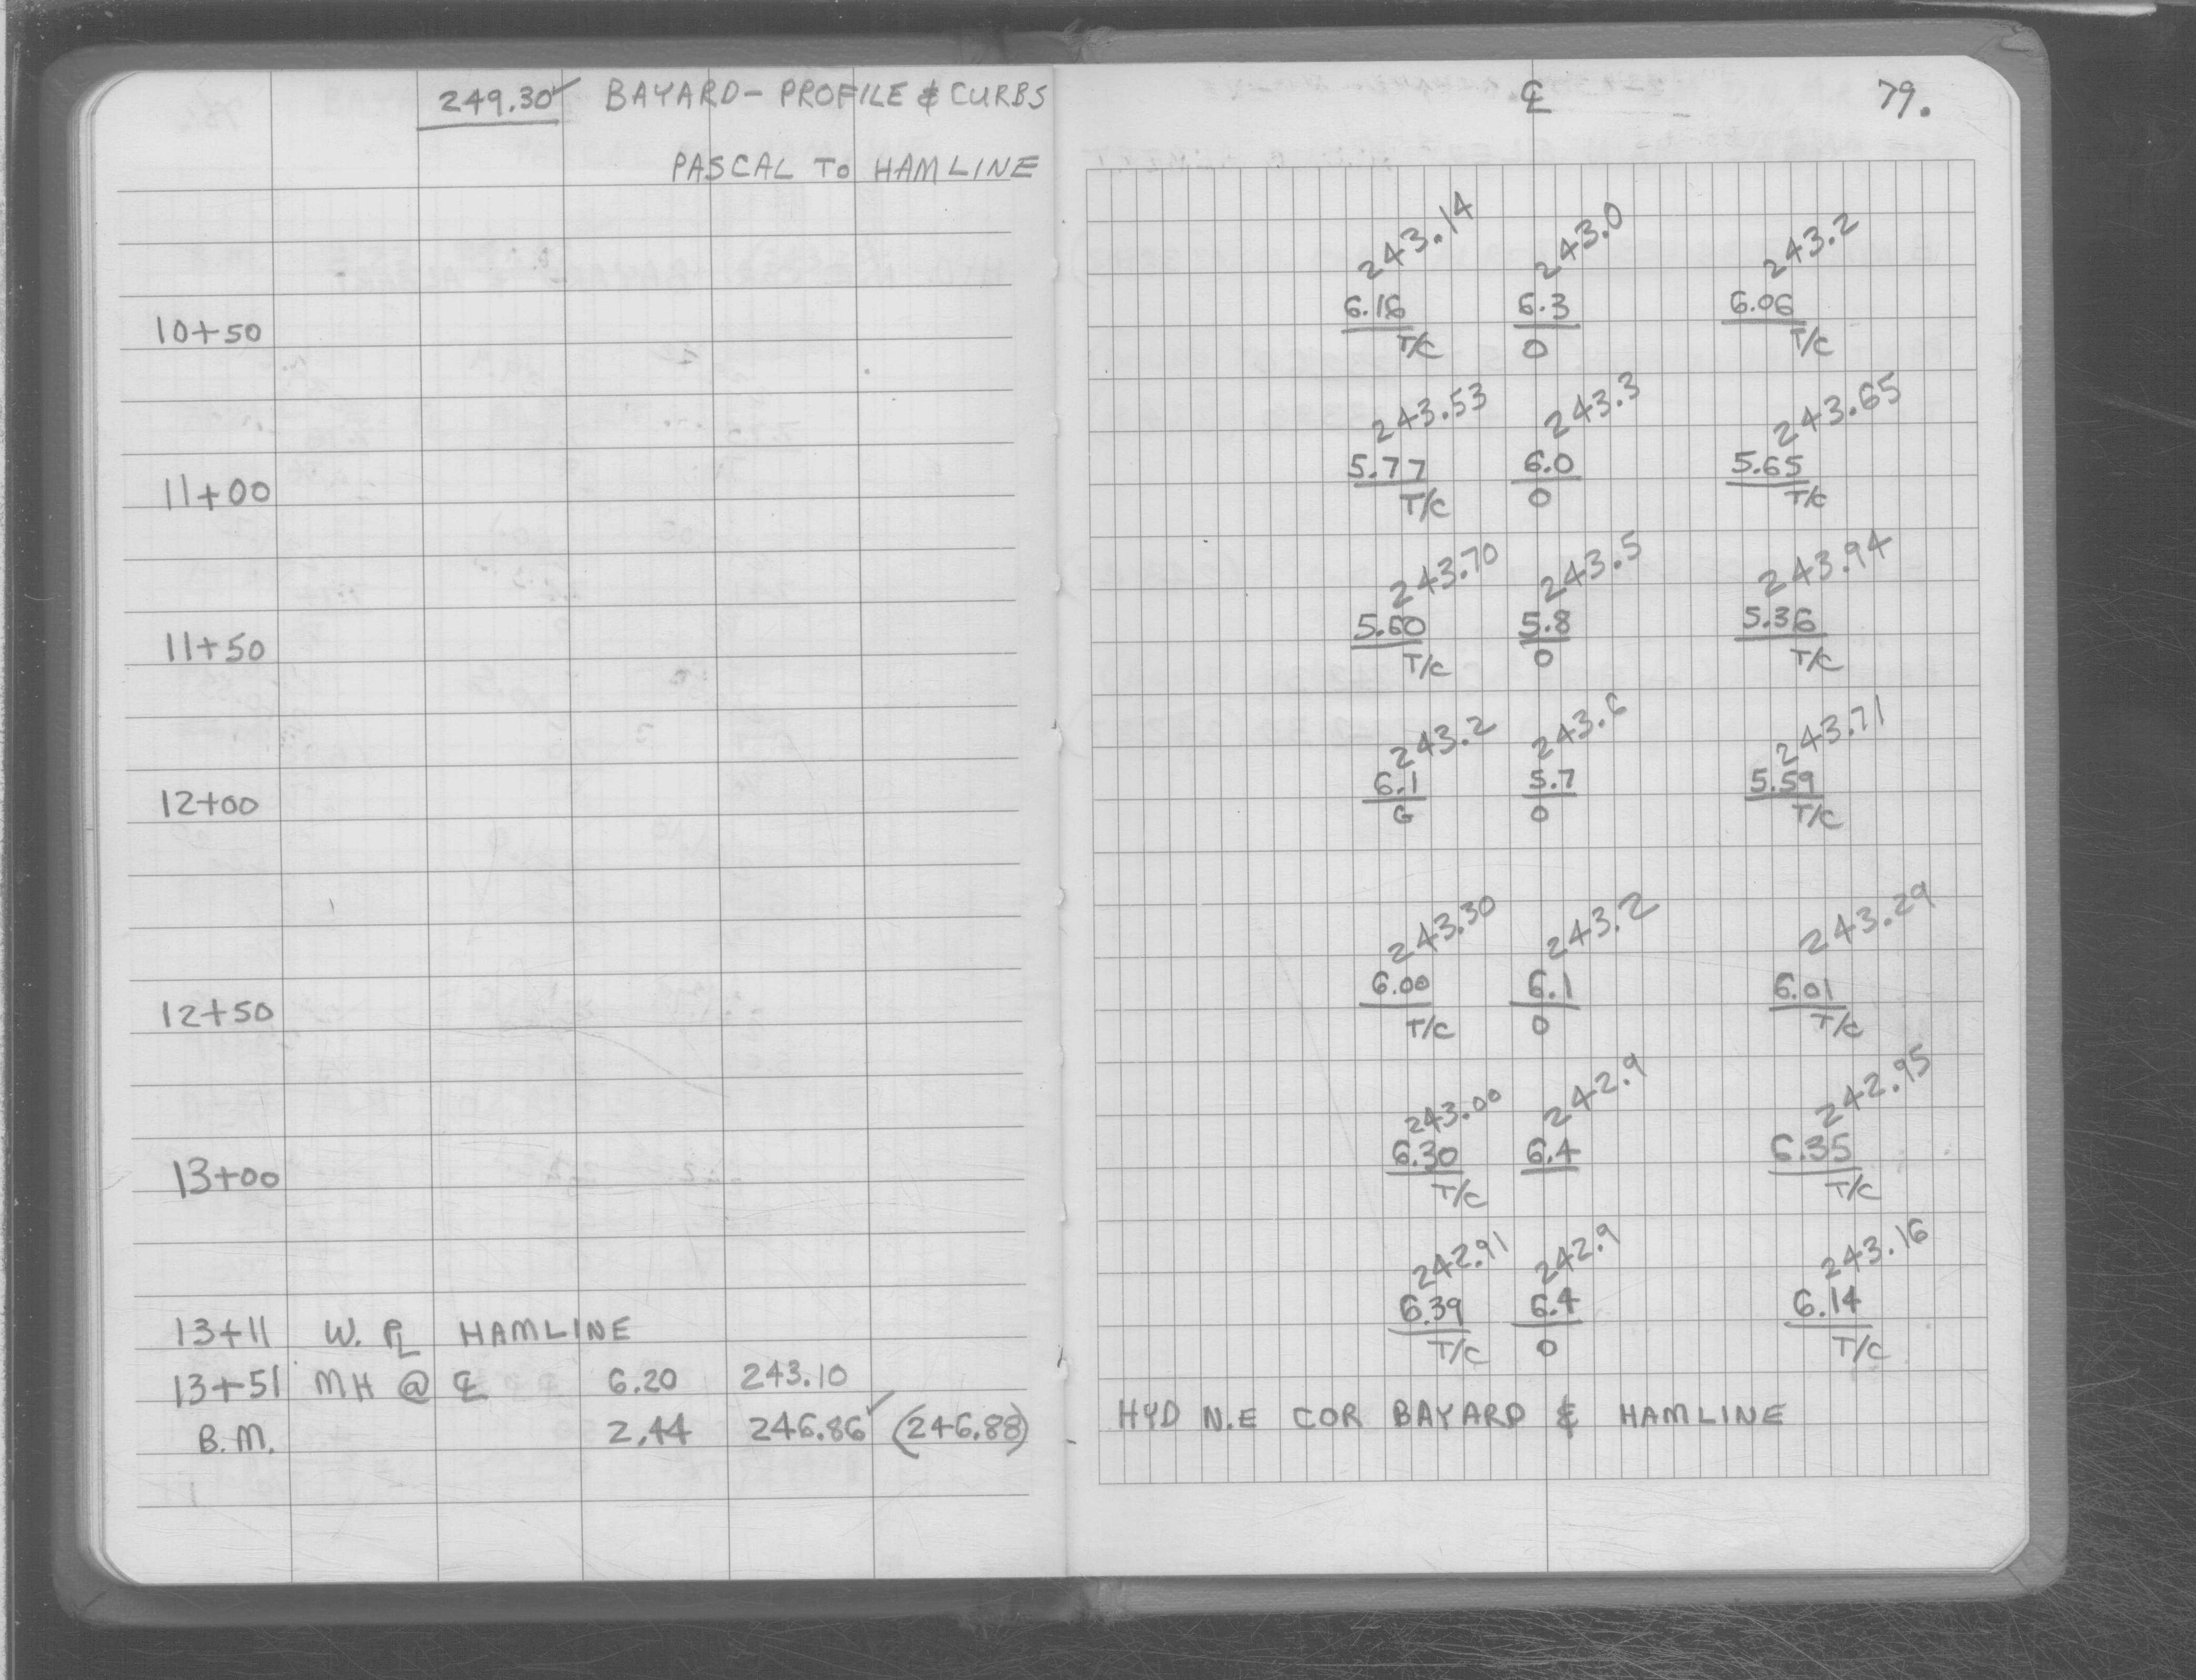 249.30✓ BAYARD - PROFILE & CURBS
PASCAL TO HAMLINE
℄ 79.
243.14 243.0 243.2
10+50 6.16 6.3 6.06
T/C 0 T/C
243.53 243.3 243.65
11+00 5.77 6.0 5.65
T/C 0 T/C
243.70 243.5 243.94
11+50 5.60 5.8 5.36
T/C 0 T/C
243.2 243.6 243.71
12+00 6.1 5.7 5.59
G 0 T/C
243.30 243.2 243.29
12+50 6.00 6.1 6.01
T/C 0 T/C
243.00 242.9 242.95
13+00 6.30 6.4 6.35
T/C T/C
242.91 242.9 243.16
13+11 W. PL HAMLINE 6.39 6.4 6.14
T/C 0 T/C
13+51 MH @ ℄ 6.20 243.10
B.M. 2.44 246.86✓ (246.88) HYD N.E COR BAYARD & HAMLINE